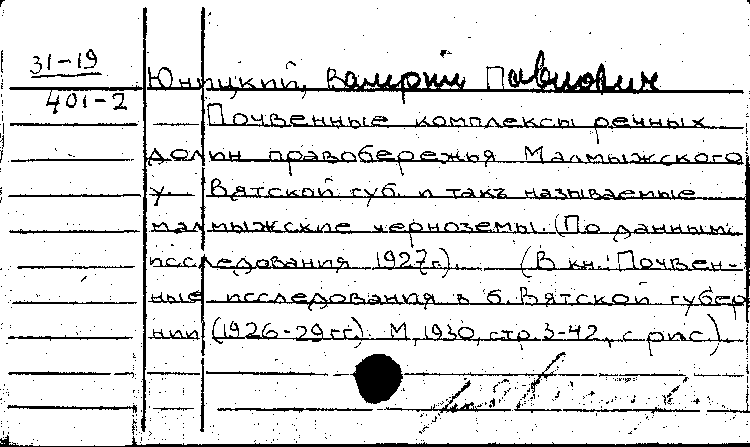 31-19
401-2
Юницкий, Валерий Павлович
Почвенные комплексы речных
долин правобережья Малмыжского
у. Вятской губ. и такъ называемые
малмыжские черноземы. (По данным
исследования 1927г.). (В кн.: Почвен-
ные исследования в б. Вятской губер
нии (1926-29гг). М, 1930, стр. 3-42, с рис.).